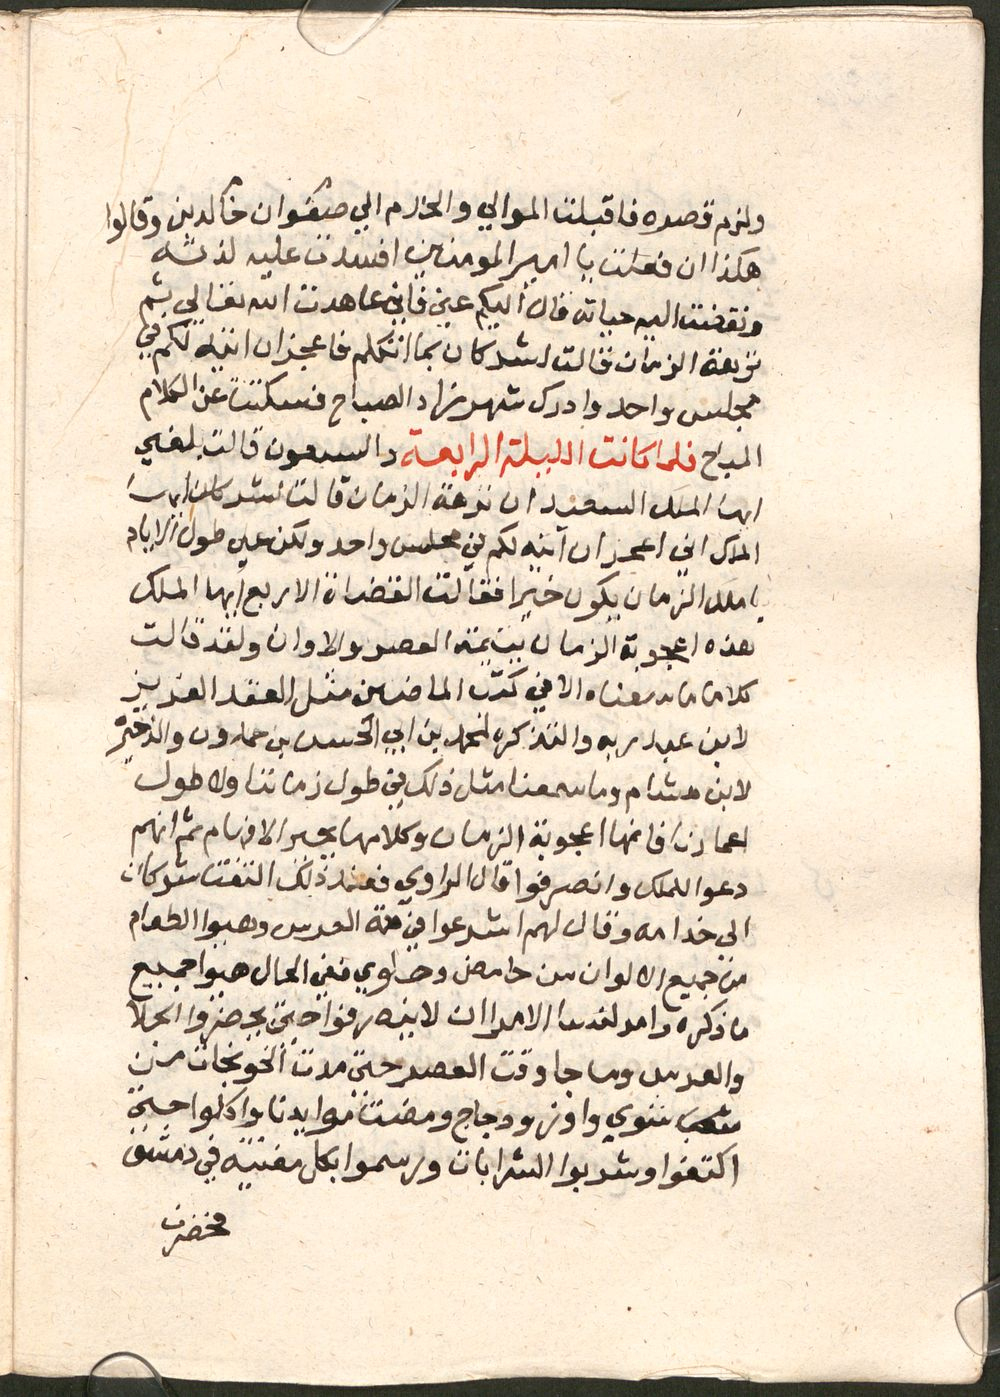 ولزم قصره فاقبلت الموالي والخدم الي صفوان خالدين وقالوا
هكذا ان فعلت يا امير المومنين افسدت عليه لذته
ونقضت اليه حياته قال اليكم عني فاني عاهدت الله تعالي ثم
نزهة الزمان قالت لشركان بما اتكلم فاعجز ان اتيه لكم في
مجلس واحد وادرك شهرزاد الصباح فسكتت عن الكلام
المباح فلما كانت الليلة الرابعة والسبعون قالت بلغني
ايها الملك السعيد ان نزهة الزمان قالت لشركان ايها
الملك اني اعجز ان اتيه لكم في مجلس واحد ولكن علي طول الايام
يا ملك الزمان يكون خيرا فقالت القضاة الاربع ايها الملك
هذه اعجوبة الزمان يتيمة العصر والاوان ولقد قالت
كلاما ما سمعناه الا في كتب الماضين مثل العقد الفريز
لابن عبد ربه والتذكره لمحمد بن ابي الحسن بن حمدون والذخيرة
لابن هشام وما سمعنا مثل ذلك في طول زماننا ولا طول
اعمارنا فانها اعجوبة الزمان وكلامها يحير الافهام ثم انهم
دعوا للملك وانصرفوا قال الراوي فعند ذلك التفت شركان
الي خدامه وقال لهم اشرعوا في العرس وهيوا الطعام
من جميع الالوان من حامض وحلوي ففي الحال هيوا جميع
ما ذكره وامر الامرا ان لا ينصرفوا حتي يحضروا الجلا
والعرس وما جا وقت العصر حتي مدت الخونجات من
شوي واوز ودجاج ومضت موايدنا واكلوا حتي
اكتفوا وشربوا الشرابات ورسموا بكل مغنية في دمشق
فحضرت